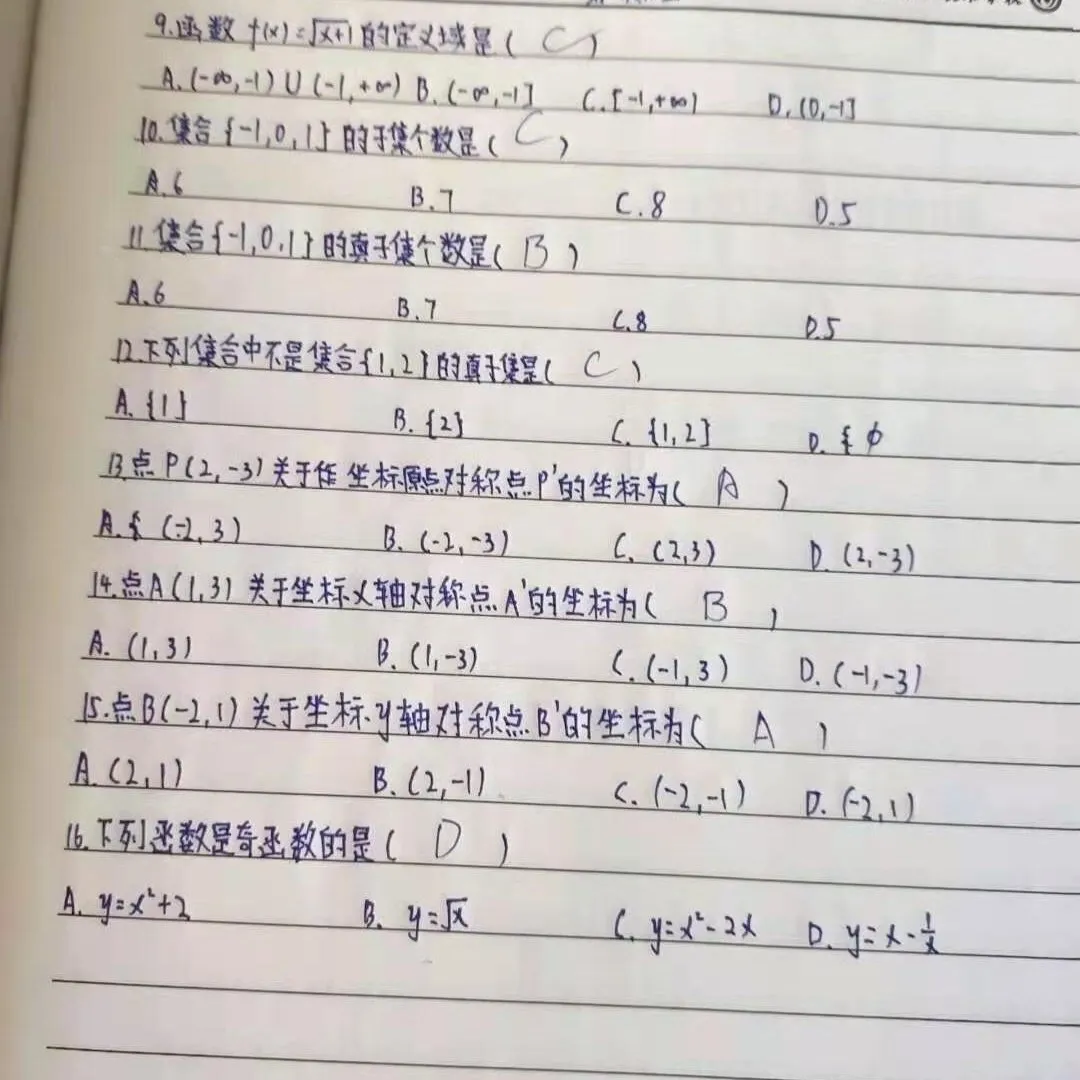 9.函数 f(x)=√x+1 的定义域是( C )
A.(-∞,-1)∪(-1,+∞) B.(-∞,-1] C.[-1,+∞) D.(0,-1]
10.集合{-1,0,1}的子集个数是( C )
A.6 B.7 C.8 D.5
11.集合{-1,0,1}的真子集个数是( B )
A.6 B.7 C.8 D.5
12.下列集合中不是集合{1,2}的真子集是( C )
A.{1} B.{2} C.{1,2} D.{ϕ
13.点P(2,-3)关于作 坐标原点对称点P'的坐标为( A )
A.{ (-2,3) B.(-2,-3) C.(2,3) D.(2,-3)
14.点A(1,3)关于坐标x轴对称点A'的坐标为( B )
A.(1,3) B.(1,-3) C.(-1,3) D.(-1,-3)
15.点B(-2,1)关于坐标y轴对称点B'的坐标为( A )
A.(2,1) B.(2,-1) C.(-2,-1) D.(-2,1)
16.下列函数是奇函数的是( D )
A. y=x²+2 B. y=√x C. y=x²-2x D. y=x-1/x